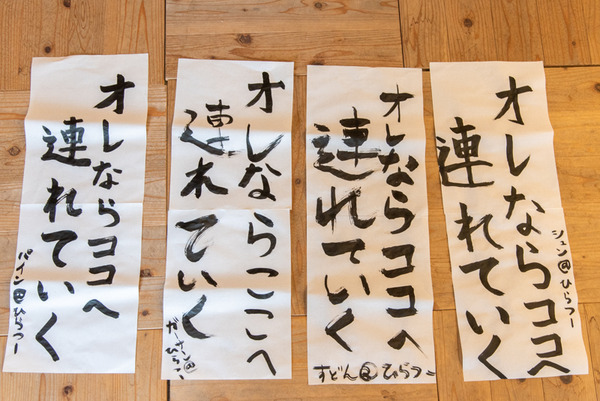 オレならココへ
連れていく
シュン@ひらつー
オレならココへ
連れていく
すどん@ひらつー
オレならここへ
連れていく
ガーサン@
ひらつー
オレならヨコへ
連れていく
パイン@ひらつー